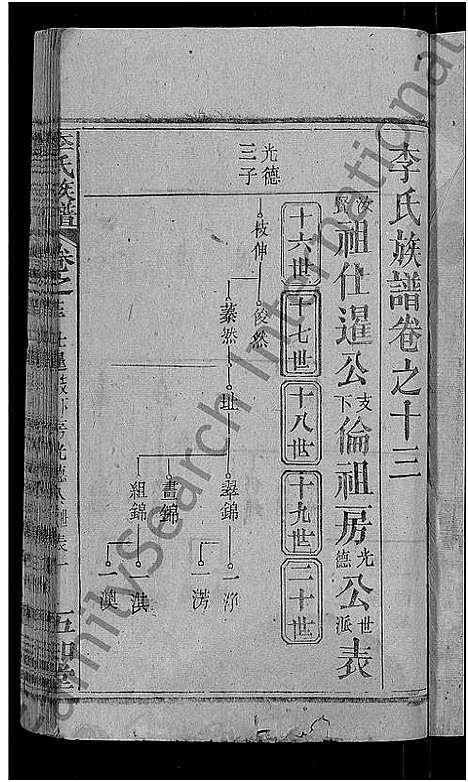 李氏族譜卷之十三
汝賢祖仕暹公支下倫祖房光德公世派表
十六世
十七世
十八世
十九世
二十世
光德
三子
枝伸
俊然
蓁然
址
翠錦
畫錦
組錦
一淓
一淇
一澳
李氏族譜
卷之
五和堂
FamilySearch International